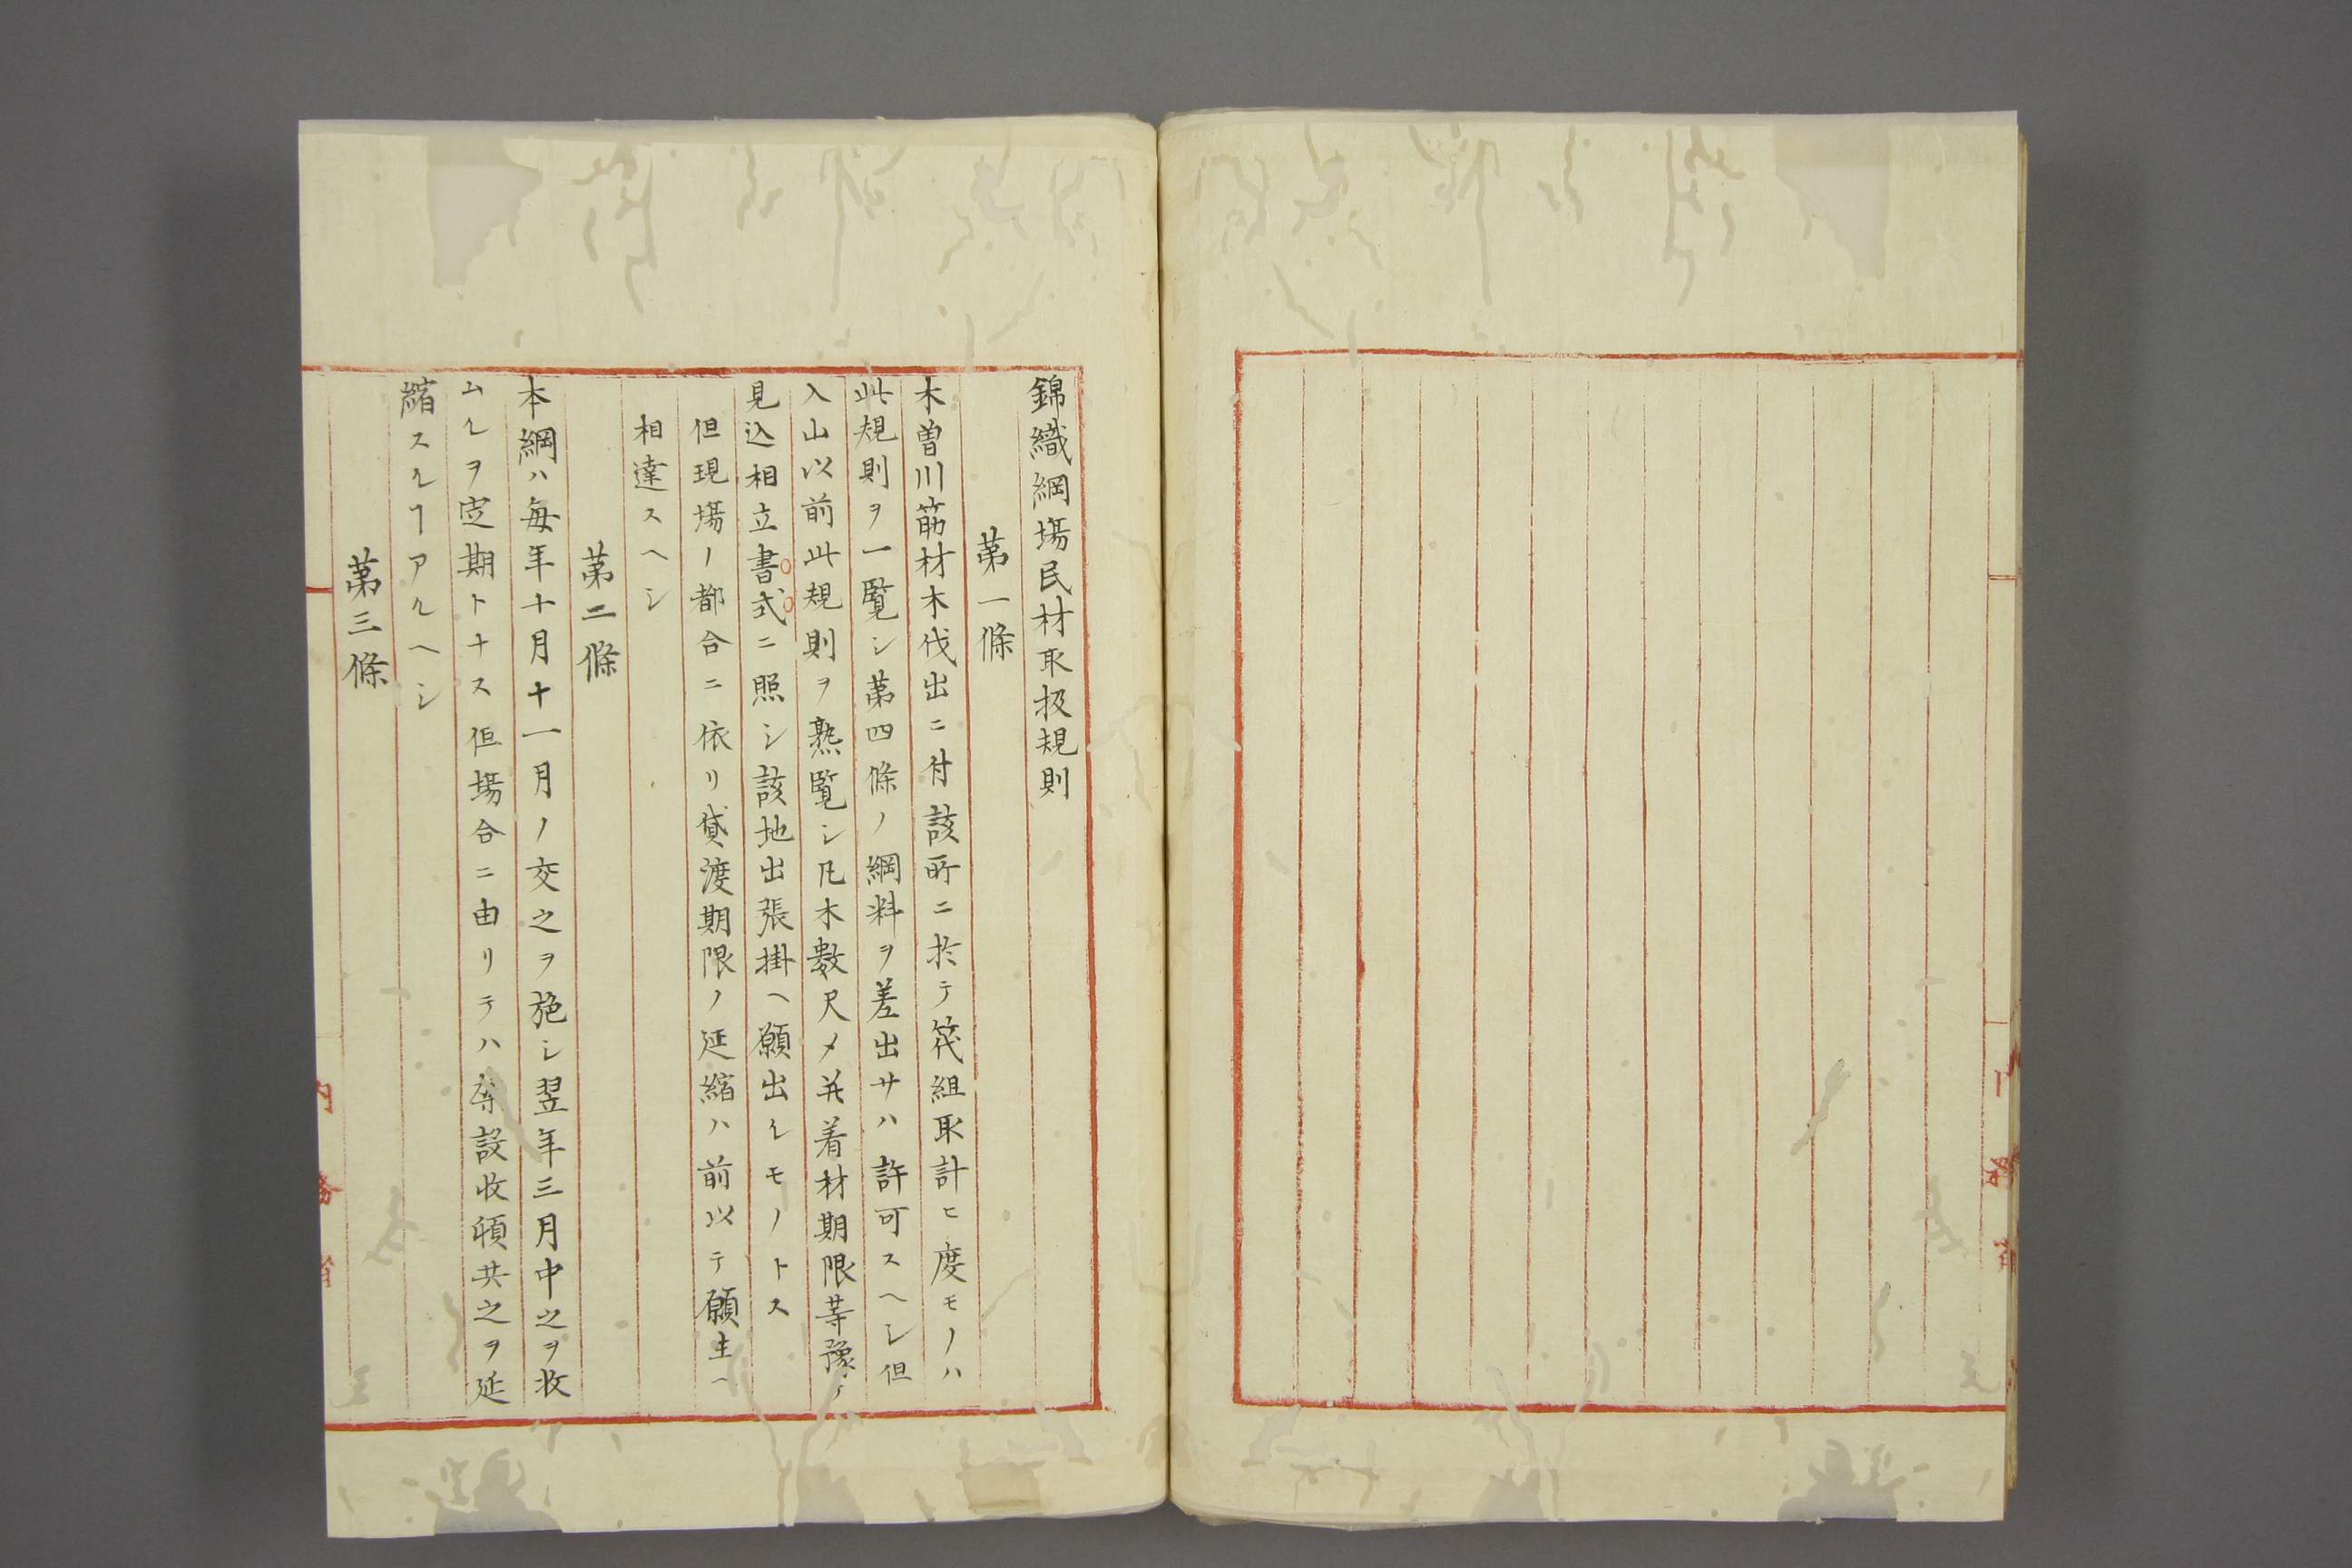 錦織綱塲民材取扱規則
第一條
木曽川筋材木伐出ニ付該所ニ於テ筏組取計ヒ度モノハ
此規則ヲ一覧シ第四條ノ綱料ヲ差出サハ許可スヘシ但
入山以前此規則ヲ熟覧シ凡木數尺〆并着材期限等豫メ
見込相立書式ニ照シ該地出張掛ヘ願出ルモノトス
但現塲ノ都合ニ依リ貸渡期限ノ延縮ハ前以テ願主ヘ
相達スヘシ
第二條
本綱ハ毎年十月十一月ノ交之ヲ施シ翌年三月中之ヲ收
ムルヲ定期トナス但塲合ニ由リテハ存設收頓共之ヲ延
縮スルヿアルヘシ
第三條
内務省